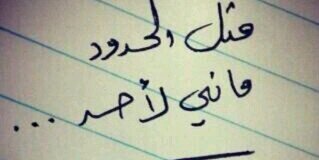 مثل الحدود
ماني لأحد ...